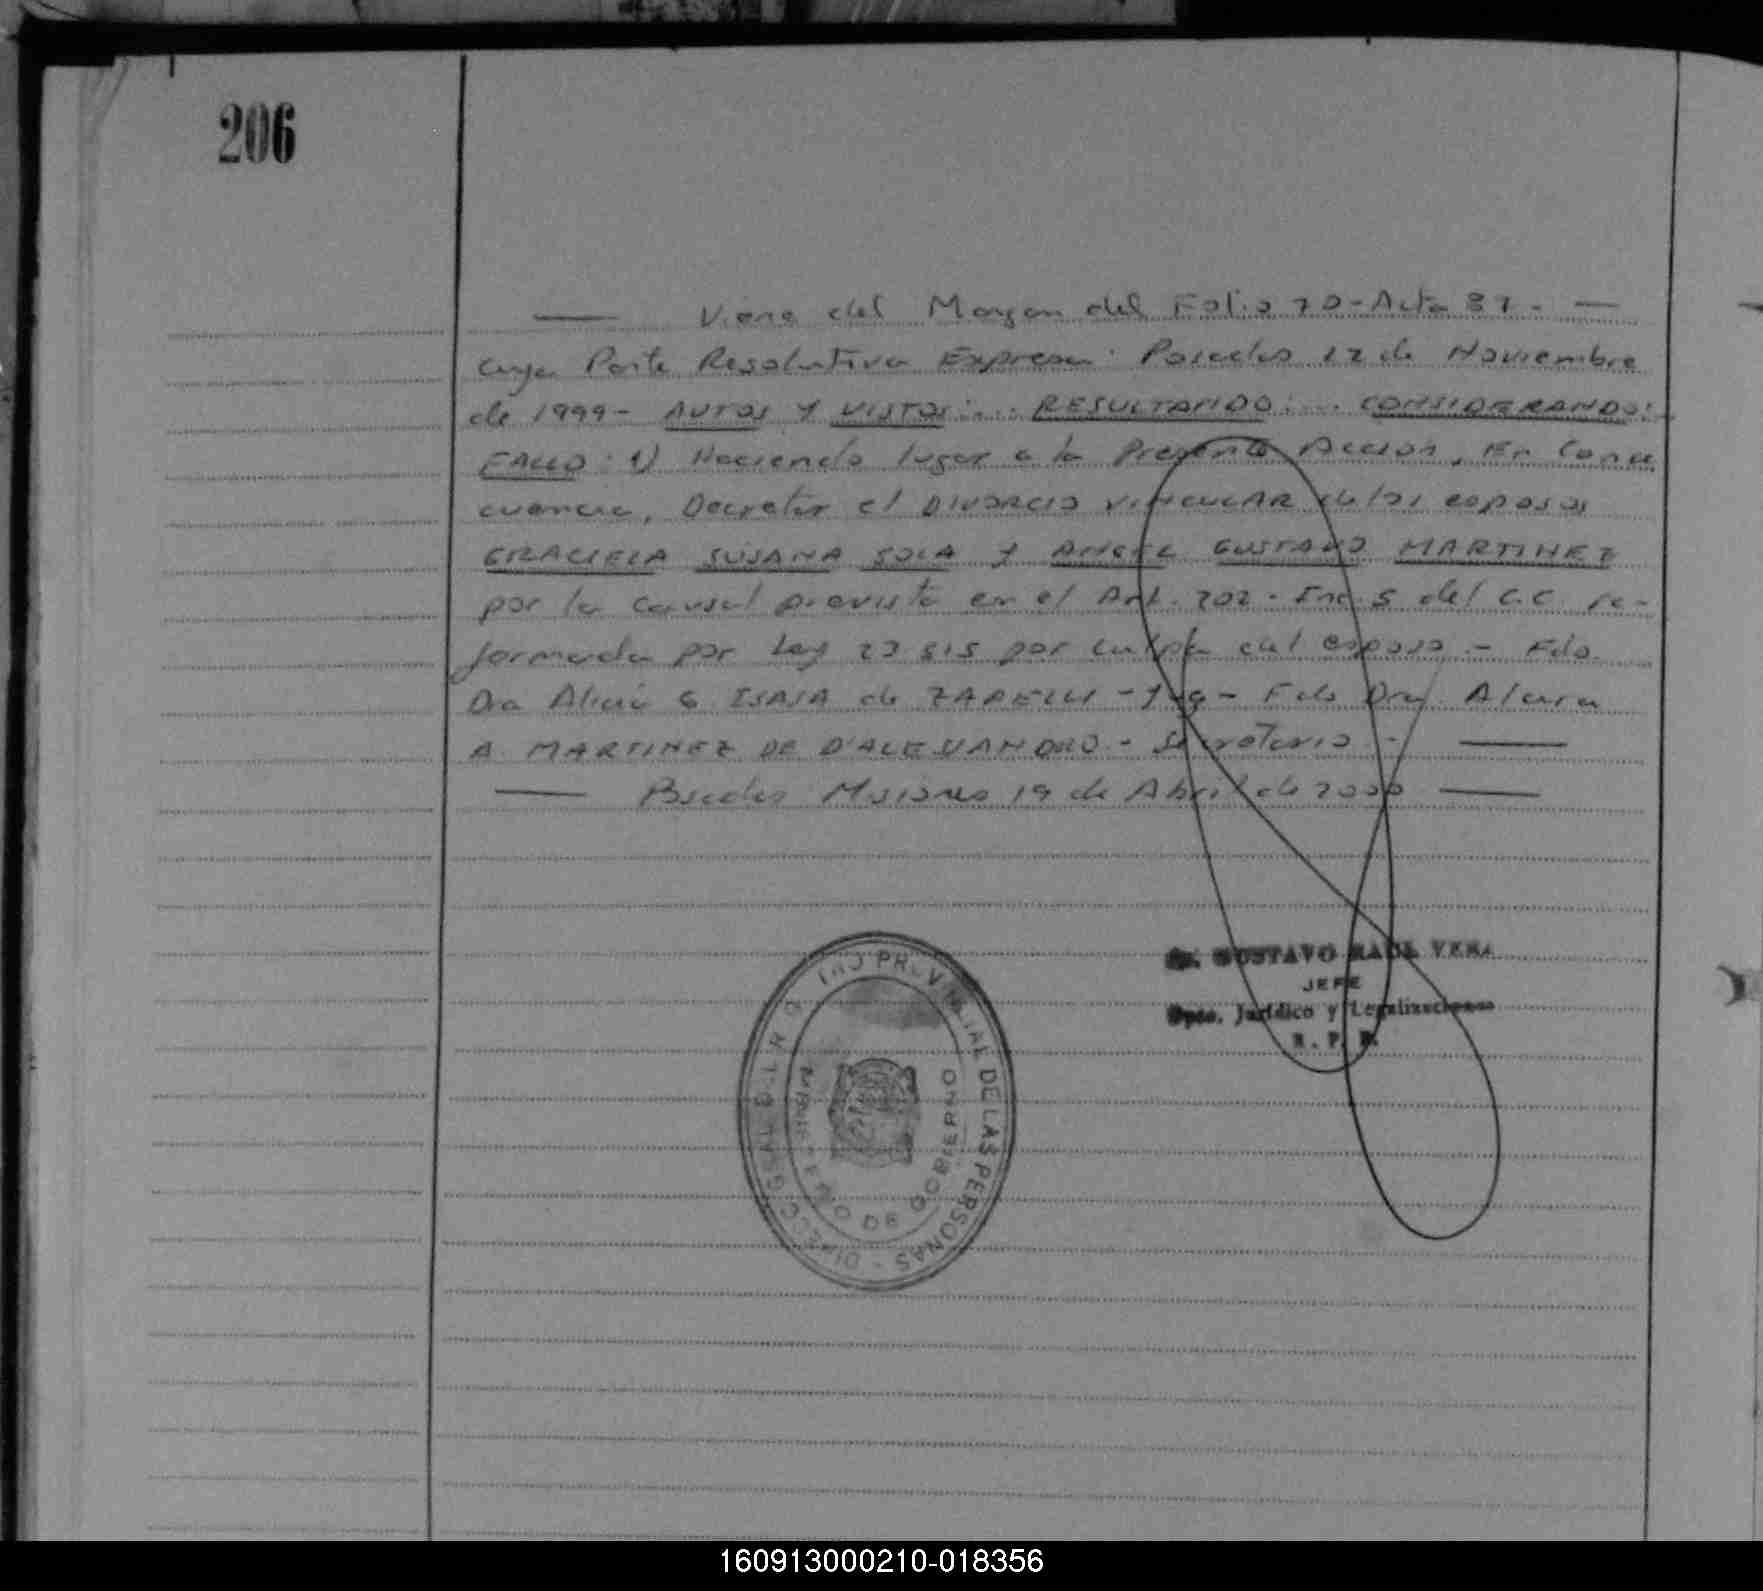 206
Viene del Margen del Folio 70 - Acta 87 -
cuya Parte Resolutiva Expresa: Posadas 12 de Noviembre
de 1999 - AUTOS Y VISTOS:.. RESULTANDO:... CONSIDERANDO:..
FALLO: 1) Haciendo lugar a la Presente Accion, En Conse
cuencia, Decretar el DIVORCIO VINCULAR de los esposos
GRACIELA SUSANA SOLA Y ANGEL GUSTAVO MARTINEZ
por la causal prevista en el Art. 202 - Inc. 5 del C.C. re-
formada por Ley 23515 por culpa del esposo - Fdo.
Dra Alicia G ISASA de ZAPELLI - Juez - Fdo Dra.
A. MARTINEZ DE D'ALESSANDRO - Secretaria -
Posadas Misiones 19 de Abril de 2000
GUSTAVO RAUL VERA
JEFE
Dpto. Jurídico y Legalizaciones
R. P. P.
DIRECC. GRAL. DEL REGISTRO PROVINCIAL DE LAS PERSONAS -
MINISTERIO DE GOBIERNO
160913000210-018356